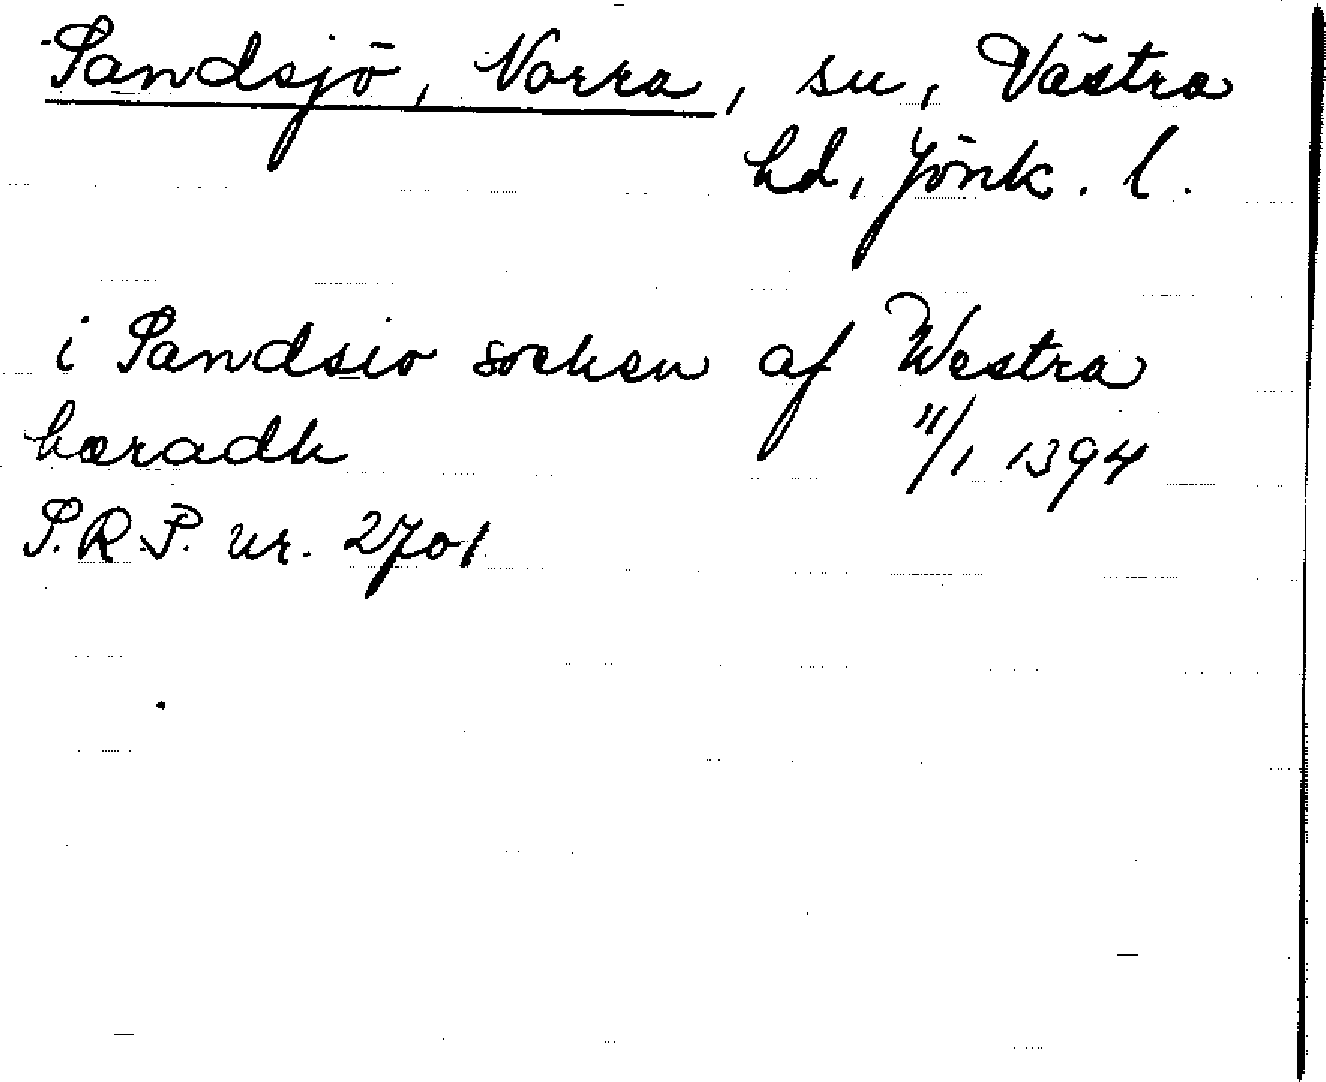 Sandsjö, Norra, sn, Västra
hd, Jönk. l.
i Sandsio sochen af Westra
hæradh 11/1 1394
S.R.P. nr. 2701